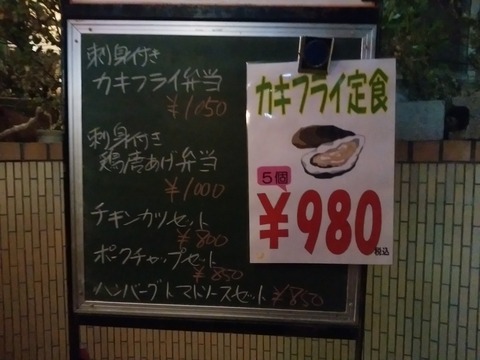 刺身付き
カキフライ弁当
¥1050
刺身付き
鶏唐あげ弁当
¥1000
チキンカツセット
¥800
ポークチャップセット
¥850
ハンバーグトマトソースセット ¥850
カキフライ定食
5個
¥980
税込